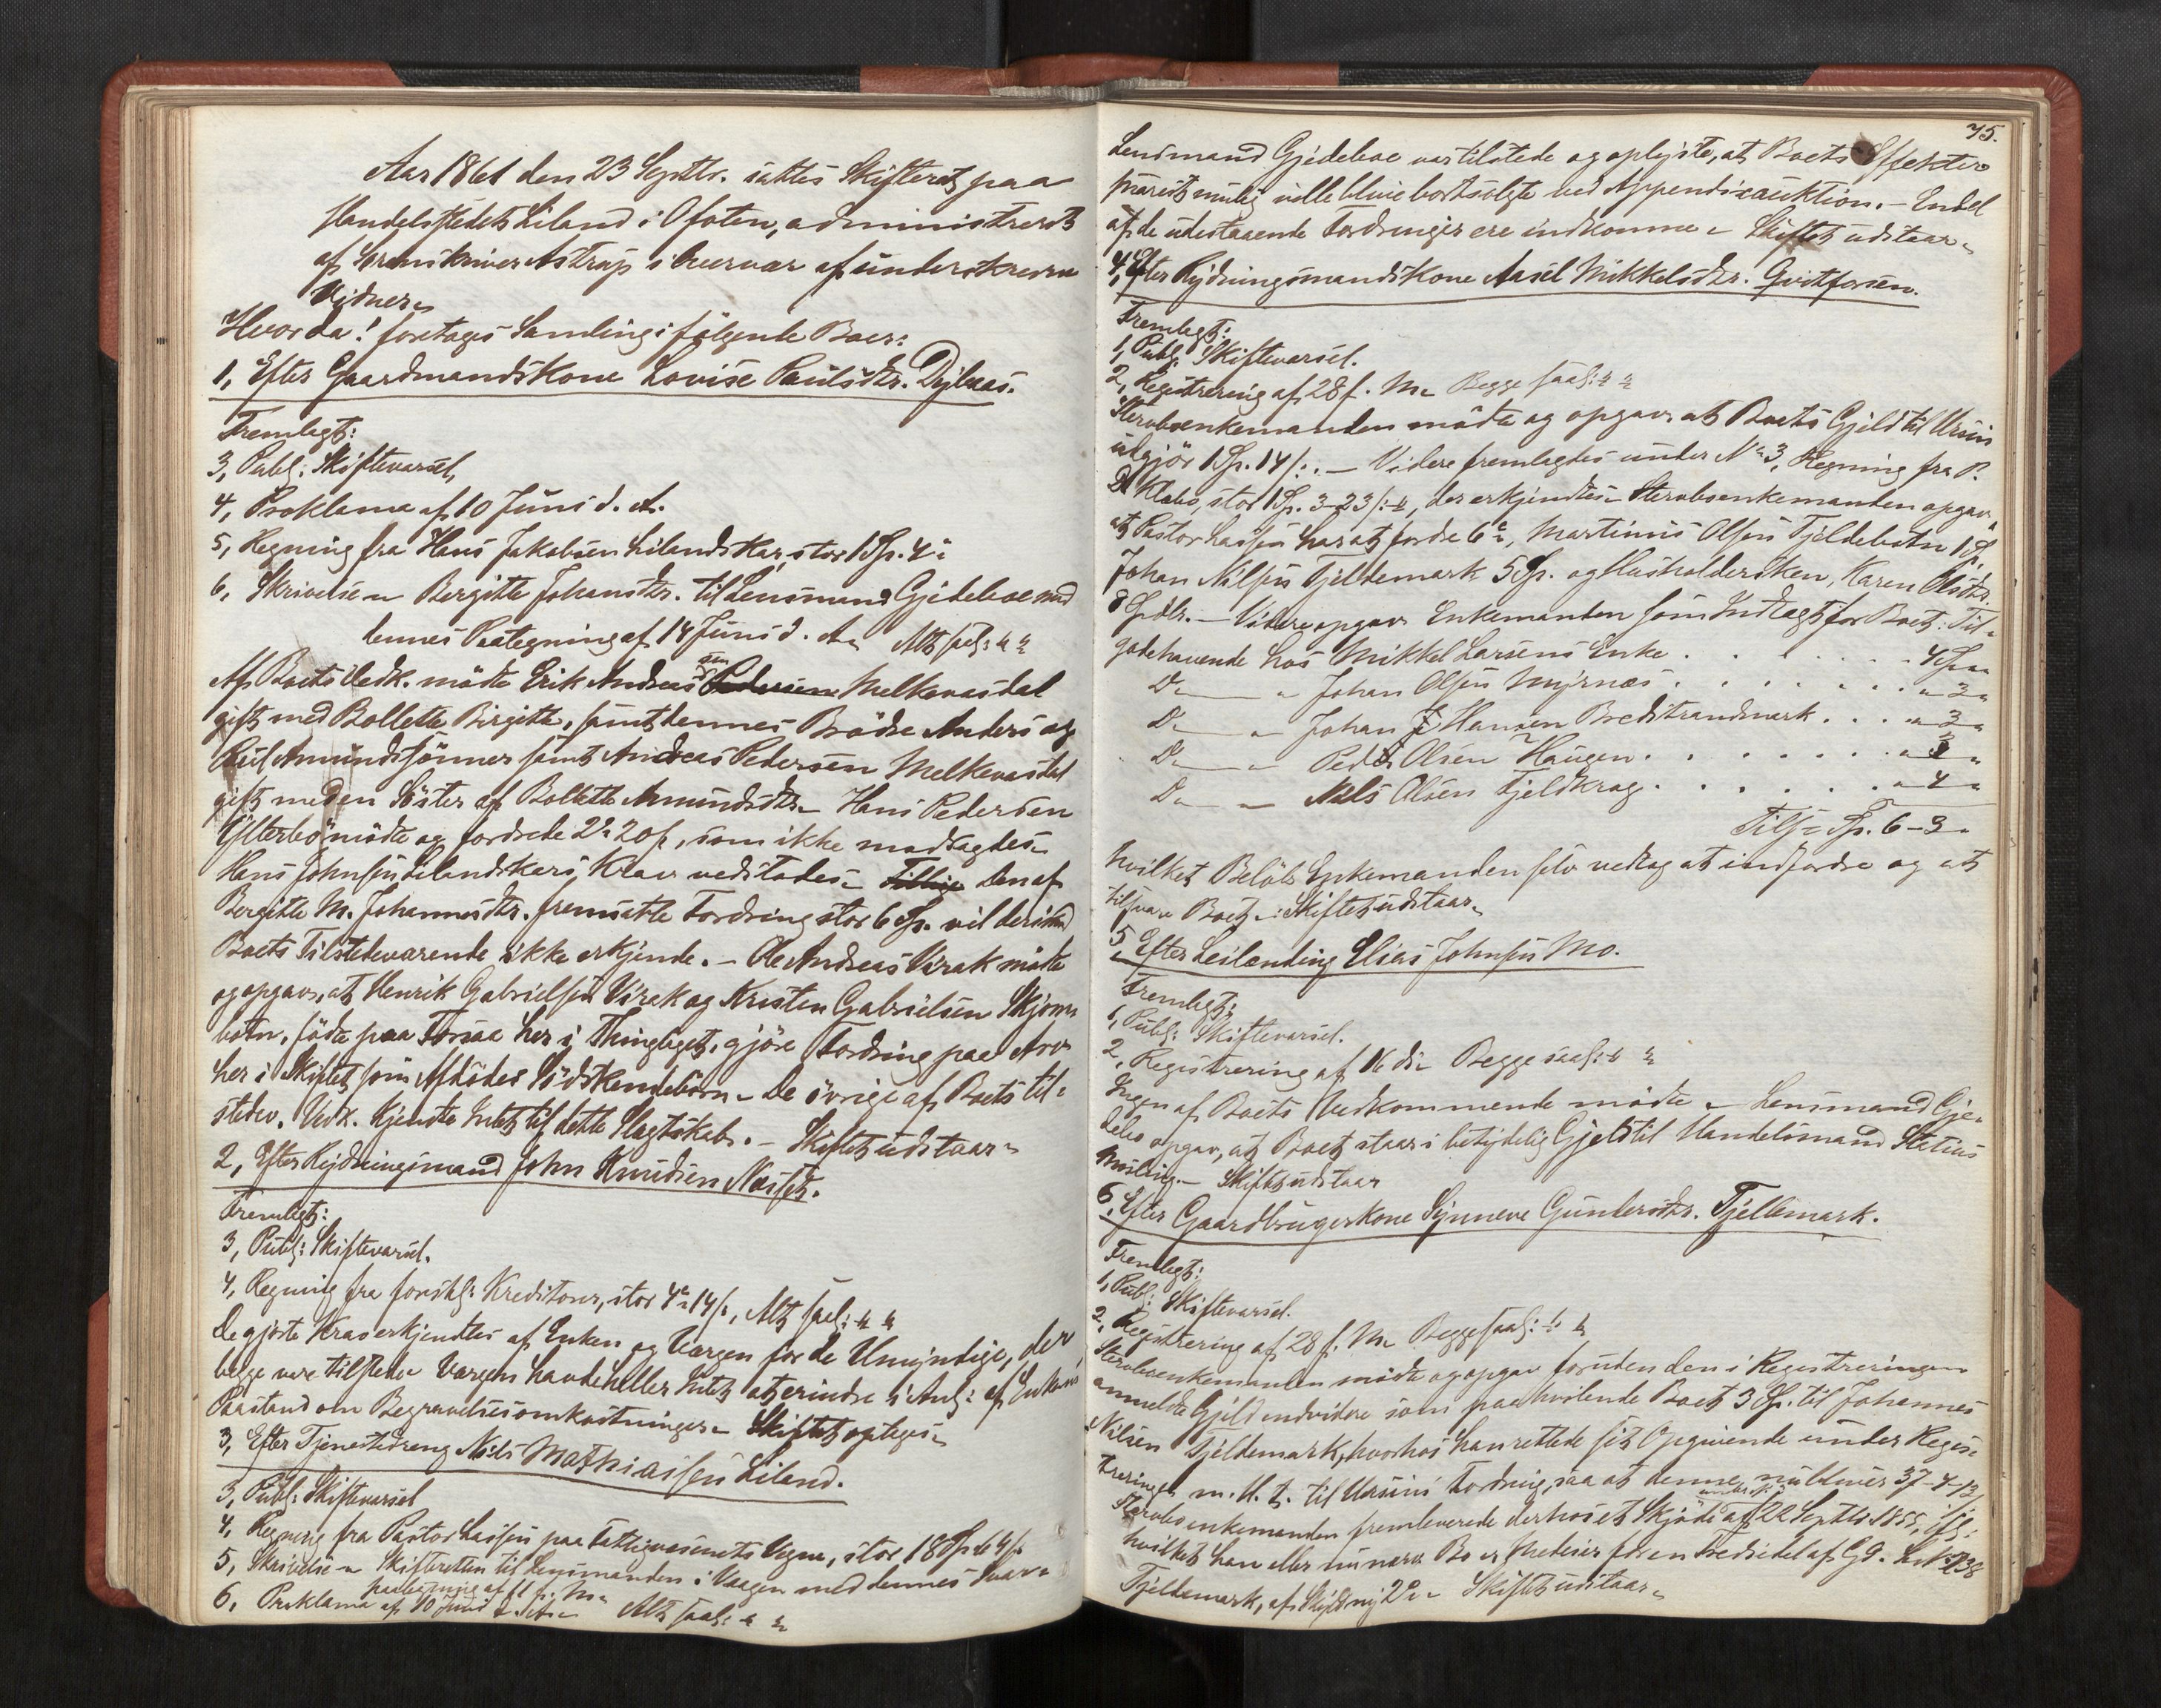 Aar 1861 den 23 Septbr. sattes Skifteret paa
Handelsstedet Liland i Ofoten, administreret
af Sorenskriver Astrup i Overvær af underskrevne
Vidner
Hvorda! foretoges Samling i følgende Boer:
1, Efter Gaardmandskone Lovise Paulsdtr. Dybaas.
Fremlagt:
3, Publ: Skiftevarsel,
4, Proklama af 10 Juni d. A.
5, Regning fra Hans Jakobsen Lilandskar, stor 1 Sp. 4
6, Skrivelse Bergitte Johansdtr. til Lensmand Gjedeboe med
dennes Paategning af 14 Juni d. A. Alt saal:
Af Boets Vedk. mødte Erik Andreassen Pedersen Melkevasdal
gift med Bollette Birgitte, samt dennes Brødre Anders og
Paul Amundssønner samt Andreas Pedersen Melkevasdal
gift med en Søster af Bollette Amundsdtr. Hans Pedersen
Ytterbø mødte og fordrede 2 20 s, som ikke modsagdes
Hans Johnsen Lilandskars Krav vedstodes Tillige den af
Bergitte M. Johannesdtr. fremsatte Fordring stor 6 Sp. vil de i
Boets Tilstedeværende ikke erkjende. - Ole Andreas Virak mødte
og opgav, at Henrik Gabrielsen Virak og Kristen Gabrielsen Skjom
botn, fødte paa Forsaa her i Thinglaget, gjøre Fordring paa Arv
her i Skiftet som Afdødes Sødskendebørn - De øvrige af Boets til-
stedev. Vedk. kjendte Intet til dette Slægtskab. - Skiftet udstaar
2, Efter Rydningsmand John Knudsen Næsset.
Fremlagt:
3, Publ: Skiftevarsel.
4, Regning fra forskj: Kreditorer, stor 4 14 s, Alt saal:
De gjorte Krav erkjendtes af Enken og Værgen for de Umyndige, der
begge vare tilstede Værgen havde heller Intet at erindre i Anl: af Enkens
Paastand om Begravelsesomkostninger. Skiftet optoges
3, Efter Tjenestedreng Nils Mathiassen Liland.
3, Publ: Skiftevarsel
4, Regning fra Pastor Lassen paa Fattigvæsenets Vegne, stor 18 Sp 4 s
5, Skrivelse Skifteretten til Lensmanden i Vaagen med dennes Svar
paategning af 11 f. M.
6. Proklama af 10 Juni d. A. Alt saal:
75.
Lensmand Gjedeboe var tilstede og oplyste, at Boets Effekter
snarest mulig ville blive bortsolgte ved Appendixauktion. - Endel
af de udestaaende Fordringer ere indkomne Skiftet udstaar
4, Efter Rydningsmandskone Aasel Mikkelsdtr. Qvitforsen.
Fremlagt:
1, Publ: Skiftevarsel.
2, Registrering af 28 f. M. Begge saal:
Stervboenkemanden mødte og opgav, at Boets Gjeld til Ursin
udgjør 1 Sp. 14 s. - Videre fremlagdes under No 3, Regning fra P.
Klæbo, stor 1 Sp. 3-23 s, der erkjendtes. Stervboenkemanden opgav
at Pastor Lassen har at fordre 6, Martinus Olsen Tjeldebotn 1 Sp
Johan Nilsen Tjeldemark 5 Sp. og Husholdersken, Karen Olsdtr
8 Spdlr. - Videre opgav Enkemanden som Indtægt for Boet: Til-
godehavende hos Mikkel Larsens Enke . . . . . 4 Sp
Do Johan Olsen Myrnæs . . . . . . 3
Do Johan Hansen Bredstrandmark . . . 3
Do Peder Olsen Haugen . . . . . . 3
Do Nils Olsen Fjeldkrog . . . . . 4
Tils. Sp. 6-3
hvilket Beløb Enkemanden selv vedtog at indfordre og at
tilsvare Boet. Skiftet udstaar
5, Efter Leilænding Elias Johnsen Mo.
Fremlagt:
1, Publ: Skiftevarsel.
2, Registrering af 16 ds. Begge saal:
Ingen af Boets Vedkommende mødte Lensmand Gje-
debo opgav, at Boet staar i betydelig Gjeld til Handelsmand Stetius
Mosling. - Skiftet udstaar
6, Efter Gaardbrugerkone Synneve Gundersdtr. Tjeldemark.
Fremlagt:
1, Publ: Skiftevarsel.
2, Registrering af 28 f. M. Begge saal:
Stervboenkemanden mødte og opgav foruden den i Registreringen
anmeldte Gjeld endvidere som paahvilende Boet 3 Sp. til Johannes
Nilsen Tjeldemark, hvorhos han rettede sit Opgivende under Regis-
treringen m. H. t. til Ursins Fordring, saa at denne nu bliver 37-4-13 s
Stervboenkemanden fremleverede derhos et Skjøde af 22 Septbr 1855, ifl:
hvilket han eller nu nærv. Bo er Medeier for en Trediedel af Gd. L.No 238
Tjeldemark, af Skyld ny 2 Skiftet udstaar